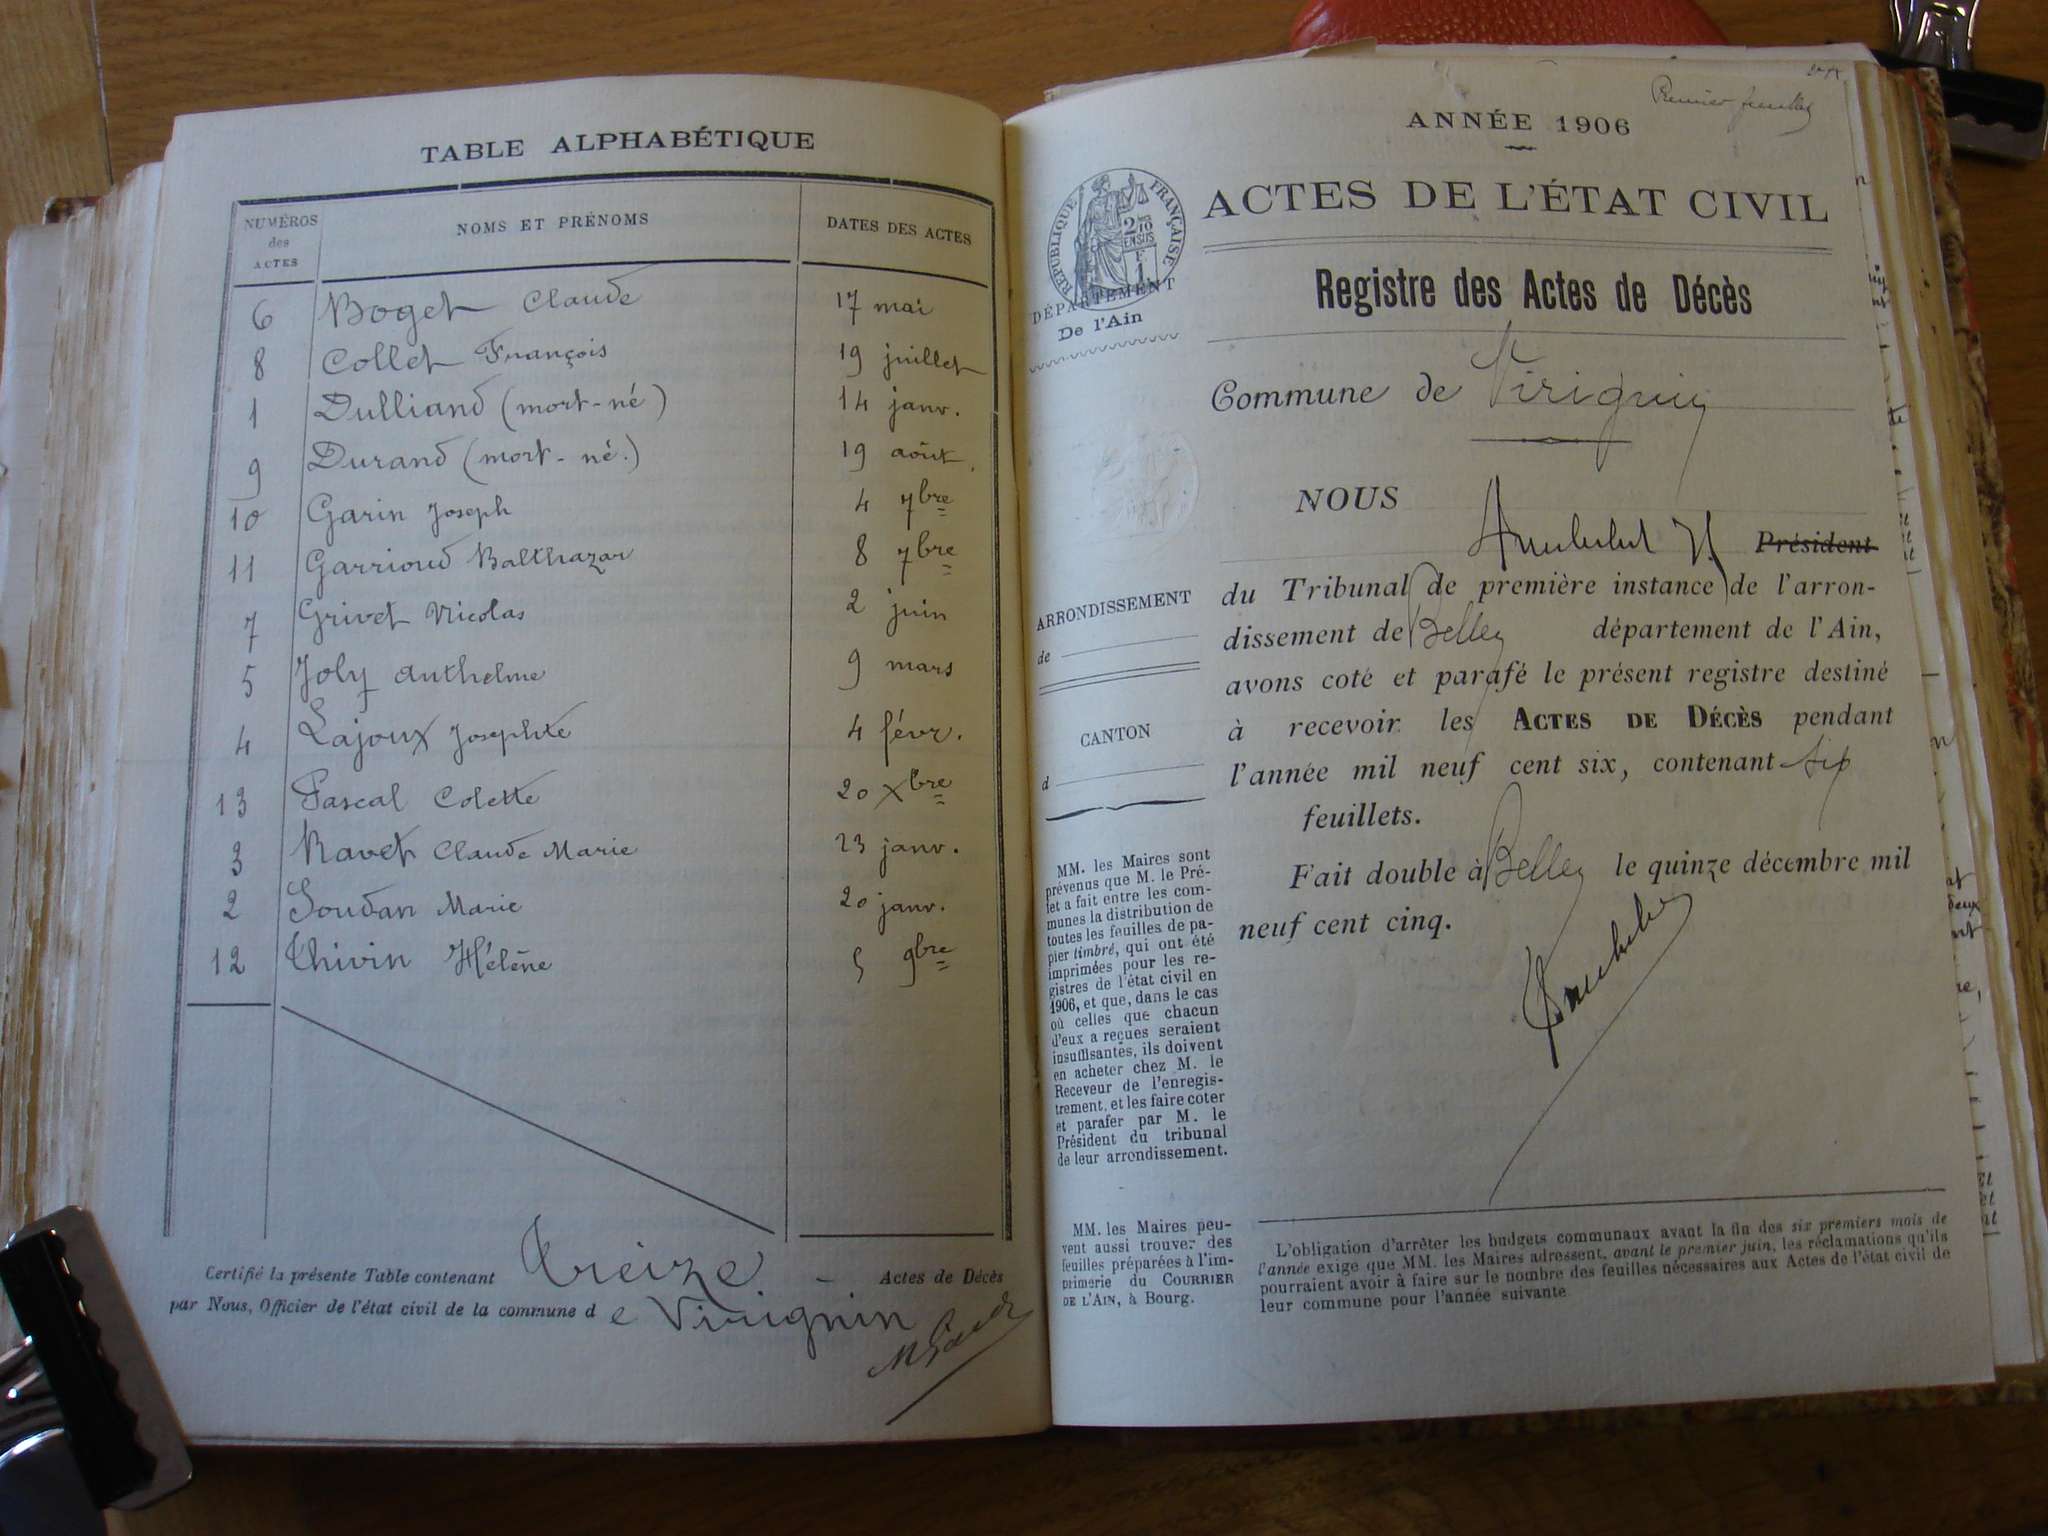 TABLE ALPHABÉTIQUE
NUMÉROS des ACTES NOMS ET PRÉNOMS DATES DES ACTES
6 Boget Claude 17 mai
8 Collet François 19 juillet
1 Dulliand (mort-né) 14 janv.
9 Durand (mort-né.) 19 août.
10 Garin Joseph 4 7bre
11 Garrioud Balthazar 8 7bre
7 Grivet Nicolas 2 juin
5 Joly Anthelme 9 mars
4 Lajoux Josephte 4 févr.
13 Pascal Colette 20 Xbre
3 Ravet Claude Marie 23 janv.
2 Soudan Marie 20 janv.
12 Thivin Hélène 5 9bre
Certifié la présente Table contenant treize - Actes de Décès
par Nous, Officier de l'état civil de la commune d e Virignin
Premier feuillet
ANNÉE 1906
RÉPUBLIQUE FRANÇAISE
2/10 EN SUS
F 1
ACTES DE L'ÉTAT CIVIL
DÉPARTEMENT
De l'Ain
Registre des Actes de Décès
Commune de Virignin
NOUS
Président
du Tribunal (de première instance) de l'arron-
dissement de Belley département de l'Ain,
avons coté et parafé le présent registre destiné
à recevoir les ACTES DE DÉCÈS pendant
l'année mil neuf cent six, contenant six
feuillets.
Fait double à Belley le quinze décembre mil
neuf cent cinq.
ARRONDISSEMENT
de
CANTON
d
MM. les Maires sont
prévenus que M. le Pré-
fet a fait entre les com-
munes la distribution de
toutes les feuilles de pa-
pier timbré, qui ont été
imprimées pour les re-
gistres de l'état civil en
1906, et que, dans le cas
où celles que chacun
d'eux a reçues seraient
insuffisantes, ils doivent
en acheter chez M. le
Receveur de l'enregis-
trement, et les faire coter
et parafer par M. le
Président du tribunal
de leur arrondissement.
MM. les Maires peu-
vent aussi trouver des
feuilles préparées à l'im-
primerie du COURRIER
DE L'AIN, à Bourg.
L'obligation d'arrêter les budgets communaux avant la fin des six premiers mois de
l'année exige que MM. les Maires adressent, avant le premier juin, les réclamations qu'ils
pourraient avoir à faire sur le nombre des feuilles nécessaires aux Actes de l'état civil de
leur commune pour l'année suivante